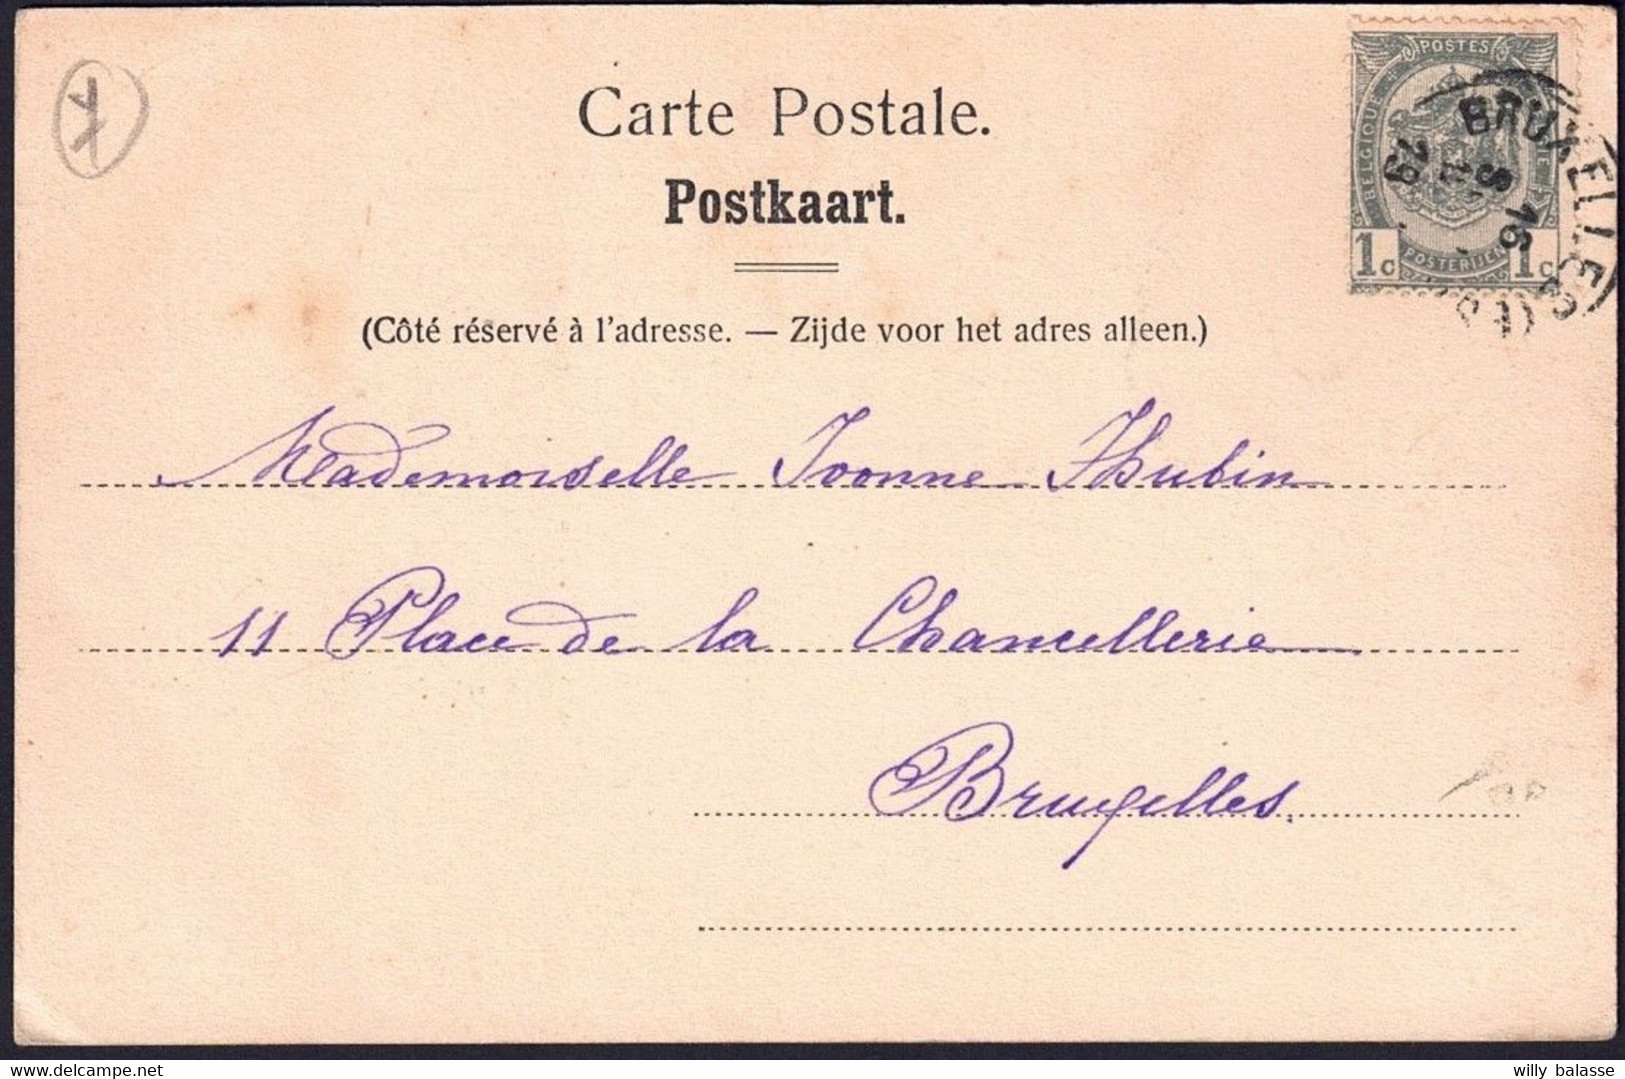 Carte Postale.
Postkaart.
(Côté réservé à l'adresse. — Zijde voor het adres alleen.)
POSTES
BELGIQUE
POSTERIJEN
1c 1c
BRUXELLES
16
Mademoiselle Ivonne Thubin
11 Place de la Chancellerie
Bruxelles.
willy balasse